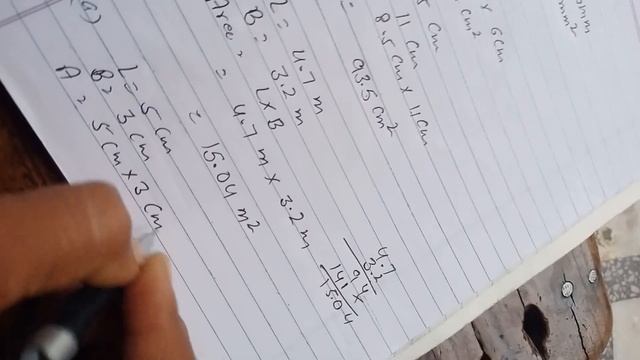 0mm
mm²
x 6cm
cm²
5 cm
11 cm
8.5 cm x 11 cm
=
93.5 cm²
L = 4.7 m
B = 3.2 m
Area = L x B
= 4.7 m x 3.2 m
= 15.04 m²
4.7
3.2
9.4
141x
15.04
(a) L = 5 cm
B = 3 cm
A = 5 cm x 3 cm